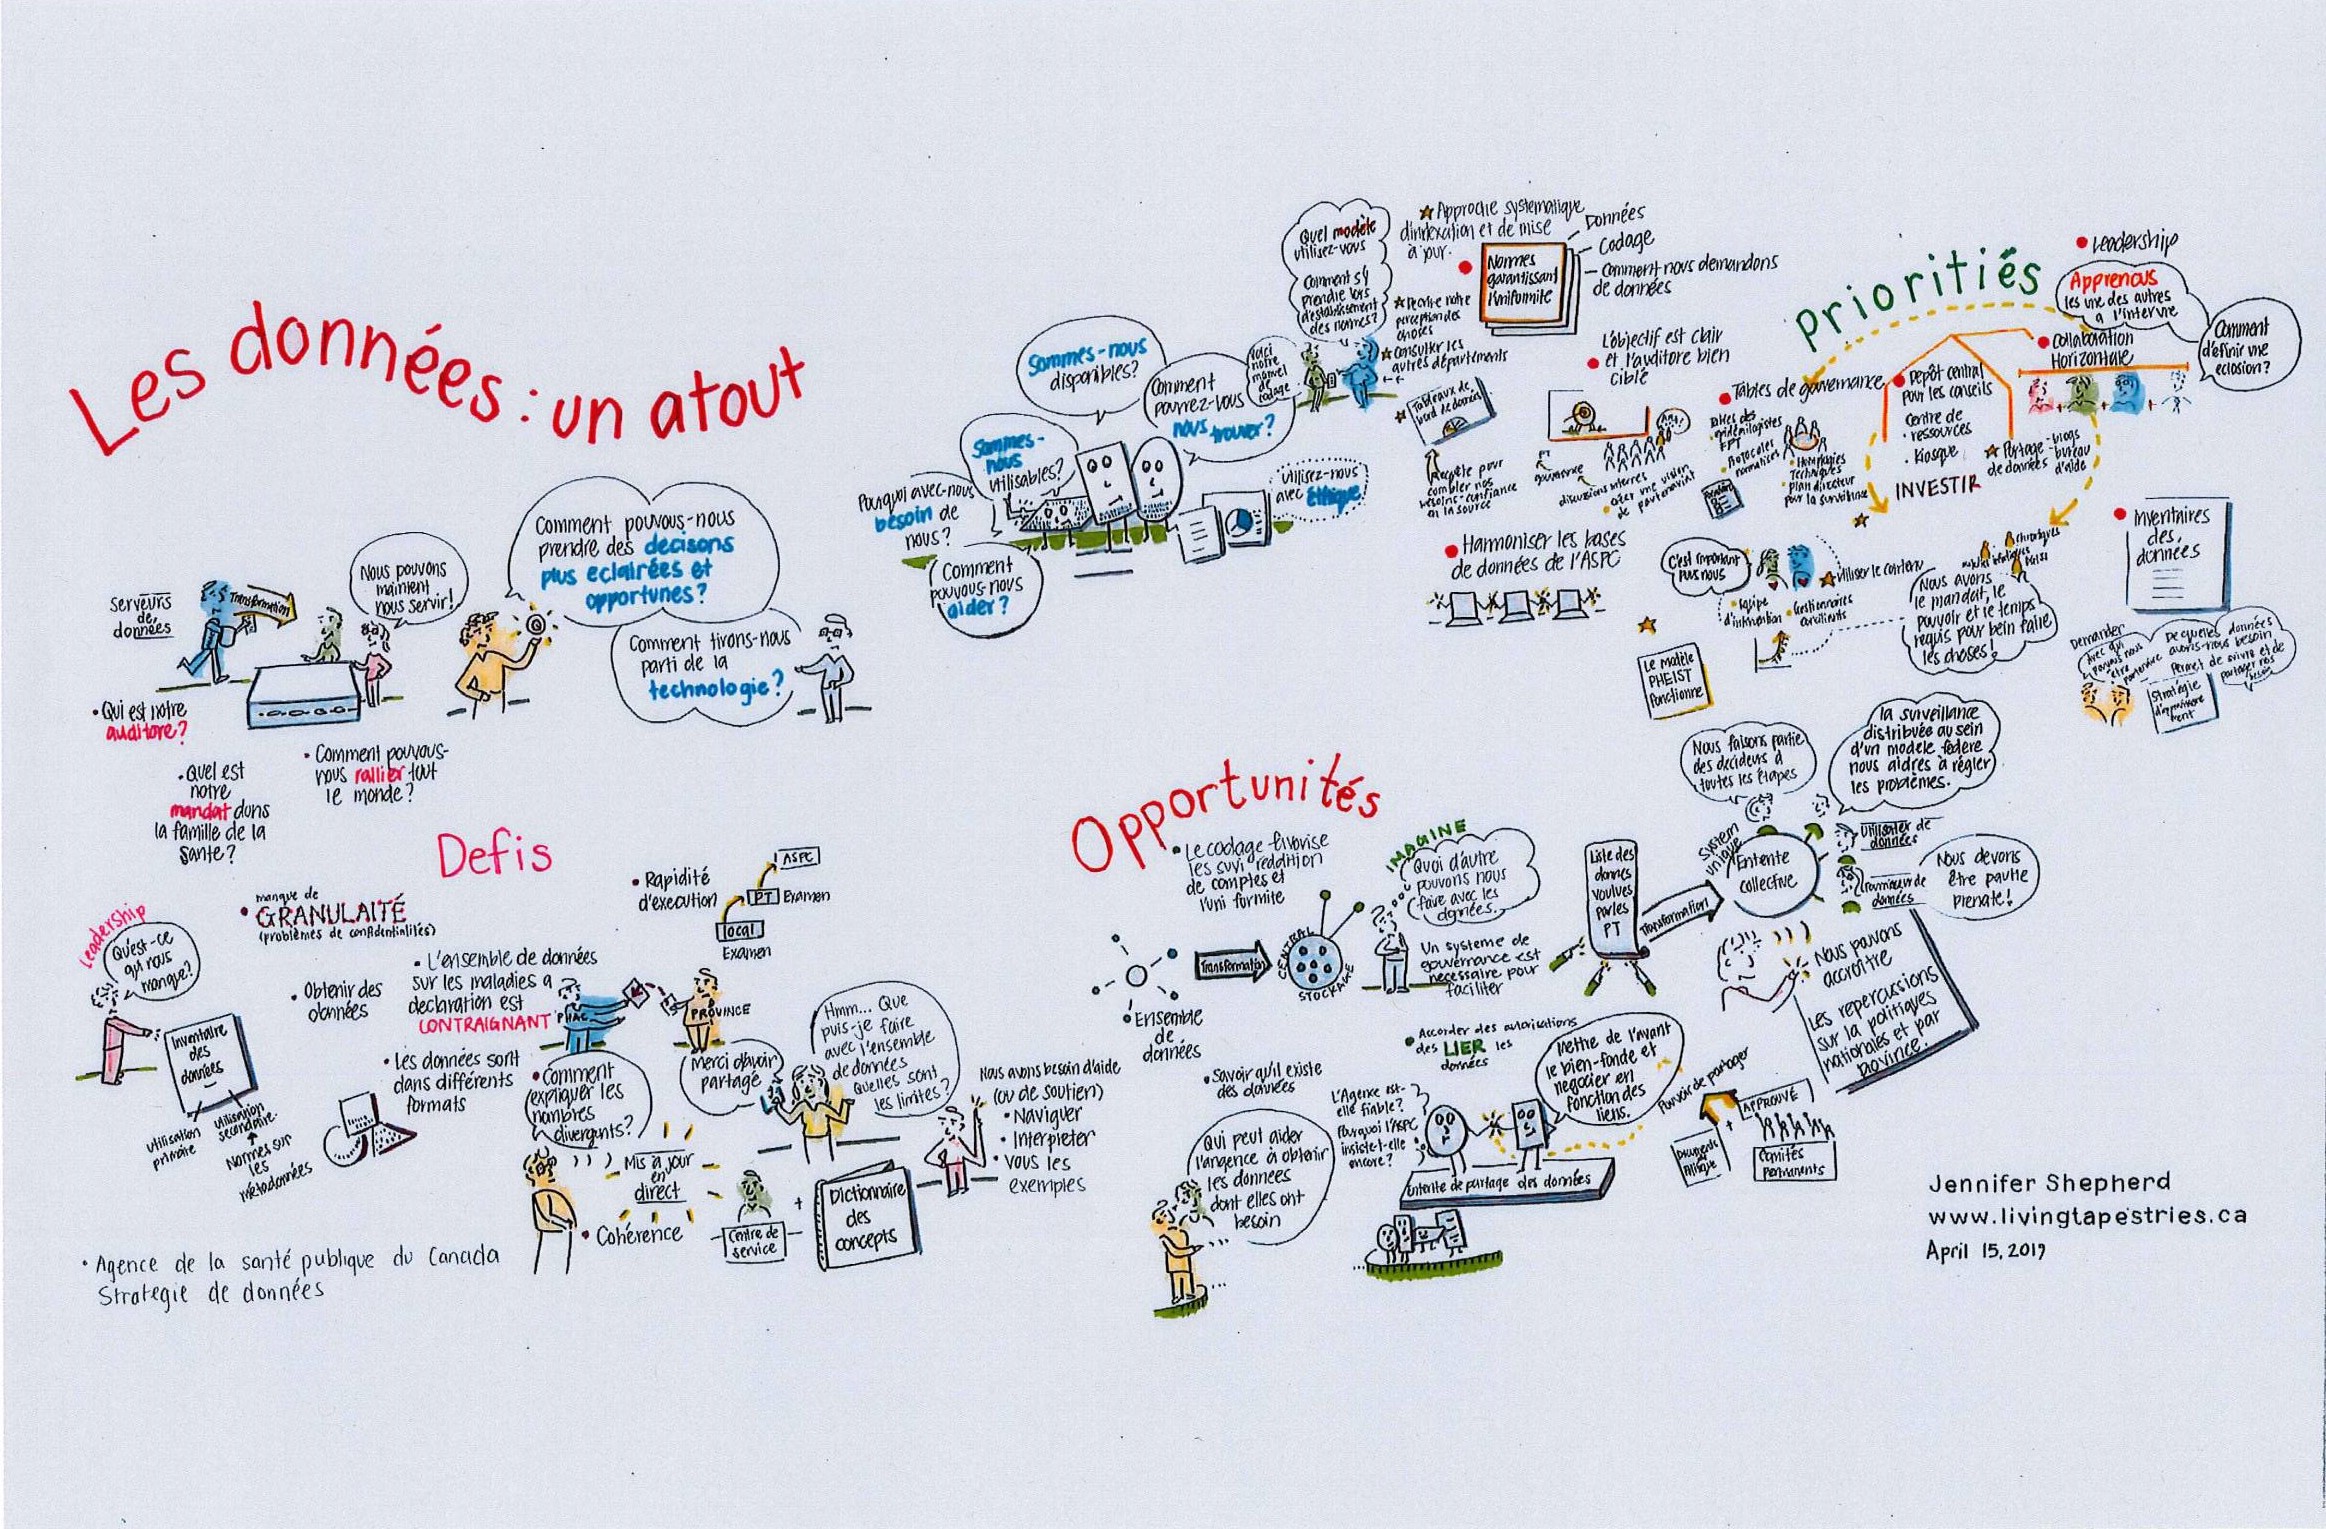 Les données : un atout
Serveurs
de
données
Transformation
Nous pouvons
maintent
nous servir!
Comment pouvous-nous
prendre des decisons
plus eclairées et
opportunes?
Comment tirons-nous
parti de la
technologie?
• Qui est notre
auditore?
• Quel est
notre
mandat dans
la famille de la
Sante?
• Comment pouvous-
nous rallier tout
le monde?
Defis
Leadership
Qu'est-ce
qui nous
manque?
Inventaire
des
données
utilisation
primaire
utilisation
secondaire
Normes sur
les
métadonnées
manque de
• GRANULAITÉ
(problèmes de confidentialités)
• Obtenir des
données
• L'ensemble de données
sur les maladies a
declaration est
CONTRAIGNANT
• Les données sont
dans différents
formats
• Rapidité
d'execution
ASPC
PT Examen
local
Examen
PHAC
PROVINCE
• Comment
expliquer les
nombres
divergents?
Merci d'avoir
partagé
Hmm... Que
puis-je faire
avec l'ensemble
de données
Quelles sont
les limites?
Nous avons besoin d'aide
(ou de soutien)
• Naviguer
• Interpreter
• vous les
exemples
Mis à jour
en
direct
• Cohérence
Centre de
service
+
Dictionnaire
des
concepts
• Agence de la santé publique du Canada
Strategie de données
Pourquoi avec-nous
besoin de
nous?
Sommes-
nous
utilisables?
Sommes-nous
disponibles?
Comment
pouvrez-vous
nous trouver?
Comment
pouvous-nous
aider?
utilisez-nous
avec éthique
Voici
notre
manuel
de
codage
Quel modèle
utilisez-vous
Comment s'y
prendre lors
d'establissement
des normes?
Approche systematique
d'indexation et de mise
à jour.
Normes
garantissant
l'uniformité
- Données
- Codage
- Comment nous demandons
de données
perception des
choses
Consulter les
autres départements
Tableaux de
bord de données
combler nos
besoins-confiance
en la source
• L'objectif est clair
et l'auditore bien
ciblé
gouvernance
discussions internes
• créer une vision
de partenariat
• Harmoniser les bases
de données de l'ASPC
prioritiés
• Leadership
Apprenous
les une des autres
a l'intervre
Comment
d'efinir une
eclosion?
• Collaboration
Horizontale
• Tables de gouvernance
• Depôt central
pour les conseils
Centre de
• ressources
• Kiosque
INVESTIR
Partage-blogs
de données -bureau
d'aide
• Inventaires
des
données
C'est important
Utiliser le contenu
• Equipe
d'intervention
• Gestionnaires
Le modèle
PHEIST
fonctionne
Nous avons
le mandat, le
pouvoir et le temps
requis pour bein faire
les choses!
Demander
Avec qui
pouvous nous
être
De quelles données
avons-nous besoin
Permet de suivre et de
partager nos
Stratégie
Opportunités
• Le codage favorise
les suvi reddition
de comptes et
l'uni formite
IMAGINE
Quoi d'autre
pouvons nous
faire avec les
dgnées.
Transformation
CENTRAL
STOCKAGE
Un systeme de
gouvernance est
necessaire pour
faciliter
• Ensemble
de
données
• Savoir qu'il existe
des données
Qui peut aider
l'angence à obtenir
les données
dont elles ont
besoin
• Accorder des autorisations
des LIER les
données
L'Agence est-
elle fiable?
Pourquoi l'ASPC
insiste-t-elle
encore?
Mettre de l'avant
le bien-fonde et
negocier en
fonction des
liens.
Entente de partage des données
Liste des
donnes
voulves
par les
PT
Transformation
System
unique
Entente
collective
Nous faisons partie
des decideurs à
toutes les étapes
la surveillance
distribuée au sein
d'un modele federe
nous aidres à régler
les problèmes.
Utilisater de
données
Fournisseur de
données
Nous devons
être partie
prenate!
Nous pouvons
accroître
Les repercussions
sur la politiques
nationales et par
province.
Pouvoir de partager
+
APPROUVÉ
Comités
permanents
Jennifer Shepherd
www.livingtapestries.ca
April 15, 2019